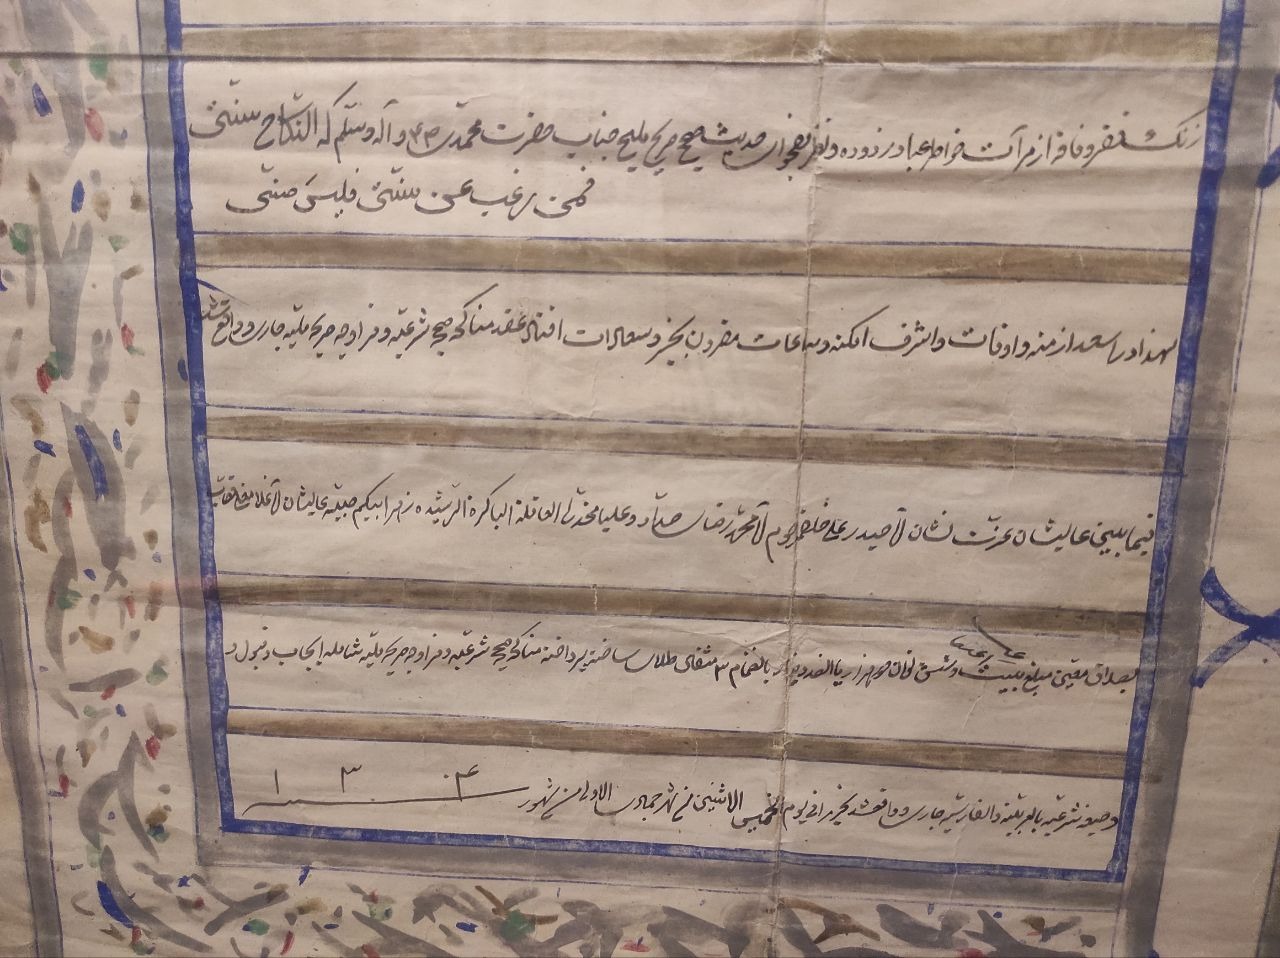 زنک فقر و فاقه از مرآت خواطر عباد زدوده و نظر بفحوای حدیث صحیح صریح ملیح جناب حضرت محمدی ص و آله و سلم که النکاح سنتی
فمن رغب عن سنتی فلیس منی
بهذا در اسعد ازمنه و اوقات و اشرف امکنه و ساعات مقرون بخیر و سعادات عقد مناکحه صحیحه شرعیه و مزاوجه صریحه ملیه جاری و واقع شد
فیمابین عالیشان عزت نشان آقا حیدر علی خلف مرحوم آقا محمد رضای حداد و علیا مخدره العاقلة الباکرة الرشیده زهرا بیکم صبیه عالیشان
بصداق معین مبلغ بیست و شش تومان بانضمام ۲ مثقال طلای ساخته پرداخته مناکحه صحیحه شرعیه و مزاوجه صریحه ملیه شامله ایجاب و قبول و
و صیغه شرعیه بالعربیه و الفارسیه جاری و واقع شد یوم الخمیس الاثنین شهر جمادی الاولی من شهور سنه ۱۳۰۴